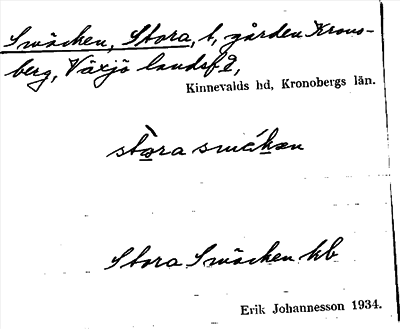 Smäcken, Stora, t, gården Krons-
berg, Växjö landsf,
Kinnevalds hd, Kronobergs län.
stora smäkən
Stora Smäcken kb
Erik Johannesson 1934.